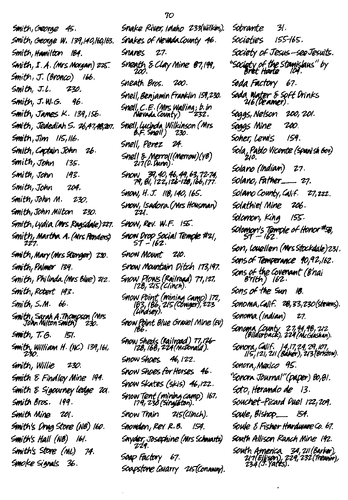 70
Smith, George 45.
Smith, George W. 139,140,160,165.
Smith, Hamilton 184.
Smith, I. A. (Mrs Morgan) 225.
Smith, J. (Bronco) 166.
Smith, J.L. 230.
Smith, J.W.G. 96.
Smith, James K. 139,156.
Smith, Jedediah S.
Smith, Jim 115,116.
Smith, Captain John 26.
Smith, John 135.
Smith, John 193.
Smith, John 204.
Smith, John M. 230.
Smith, John Milton 230.
Smith, Lydia (Mrs Ragsdale) 227.
Smith, Martha A. (Mrs Flanders)
227.
Smith, Mary (Mrs Stanger) 230.
Smith, Palmer 139.
Smith, Philinda (Mrs Blue) 212.
Smith, Robert 193.
Smith, S.M. 66.
Smith, Sarah A. Thompson (Mrs
John Milton Smith) 230.
Smith, T.G. 151.
Smith, William H. (NC) 139,161,
230.
Smith, Willie 230.
Smith & Findley Mine 194.
Smith & Sigourney Lodge 201.
Smith Bros. 199.
Smith Mine 201.
Smith's Drug Store (NB) 160.
Smith's Hall (NB) 161.
Smith's Store (NL) 74.
Smoke Signals 36.
Snake River, Idaho 233 (Wilkin).
Snakes of Nevada County 46.
Snares 27.
Sneath & Clay Mine 87,199,
200.
Sneath Bros. 200.
Snell, Benjamin Franklin 159,230.
Snell, C.E. (Mrs Walling; b. in
Nevada County) 232.
Snell, Lucinda Wilkinson (Mrs
B.F. Snell) 230.
Snell, Perez 24.
Snell & Merrow (YB)
217 (D. Dunn).
Snow
Snow, H.J. 118,140,165.
Snow, Isadora (Mrs Housman)
221.
Snow, Rev. W.F. 155.
Snow Drop Social Temple #21,
ST — 162.
Snow Mount 210.
Snow Mountain Ditch 173,197.
Snow Plows (Railroad) 77,127,
128, 215 (Cinch).
Snow Point (Mining Camp) 172,
Snow Point Blue Gravel Mine
186.
Snow Sheds (Railroad)
Snow Shoes 46,122.
Snow Shoes for Horses 46.
Snow Skates (Skis) 46,122.
Snow Tent (mining camp) 167,
Snow Train 215 (Clinch).
Snowden, Rev. R.B. 154.
Snyder, Josephine (Mrs Schwartz)
229.
Soap Factory 67.
Soapstone Quarry 215 (Conaway).
Sobrante 31.
Societies 155-165.
Society of Jesus — see Jesuits.
"Society of the Stanislaus" by
Bret Harte 104.
Soda Factory 67.
Soda Water & Soft Drinks
216 (Deamer).
Soggs, Nelson 200, 201.
Soggs Mine 200.
Soher, Lewis 154.
Sola, Pablo Vicente (Spanish Gov)
210.
Solano (Indian) 27.
Solano, Father 27.
Solano County, Calif. 27, 222.
Solathiel Mine 206.
Solomon, King 155.
Solomon's Temple of Honor #8,
ST — 162.
Son, Louellen (Mrs Stockdale) 231.
Sons of Temperance 90,92,162.
Sons of the Covenant (B'nai
B'rith) 162.
Sons of the Sun 18.
Sonoma, Calif.
Sonoma (Indian) 27.
Sonoma County
Sonora, Calif.
Sonora, Mexico 95.
"Sonora Journal" (paper) 80,81.
Soto, Hernando de 13.
Souchet-Picard Duel 122,209.
Soule, Bishop 154.
Soule & Fisher Hardware Co. 67.
South Allison Ranch Mine 192.
South America